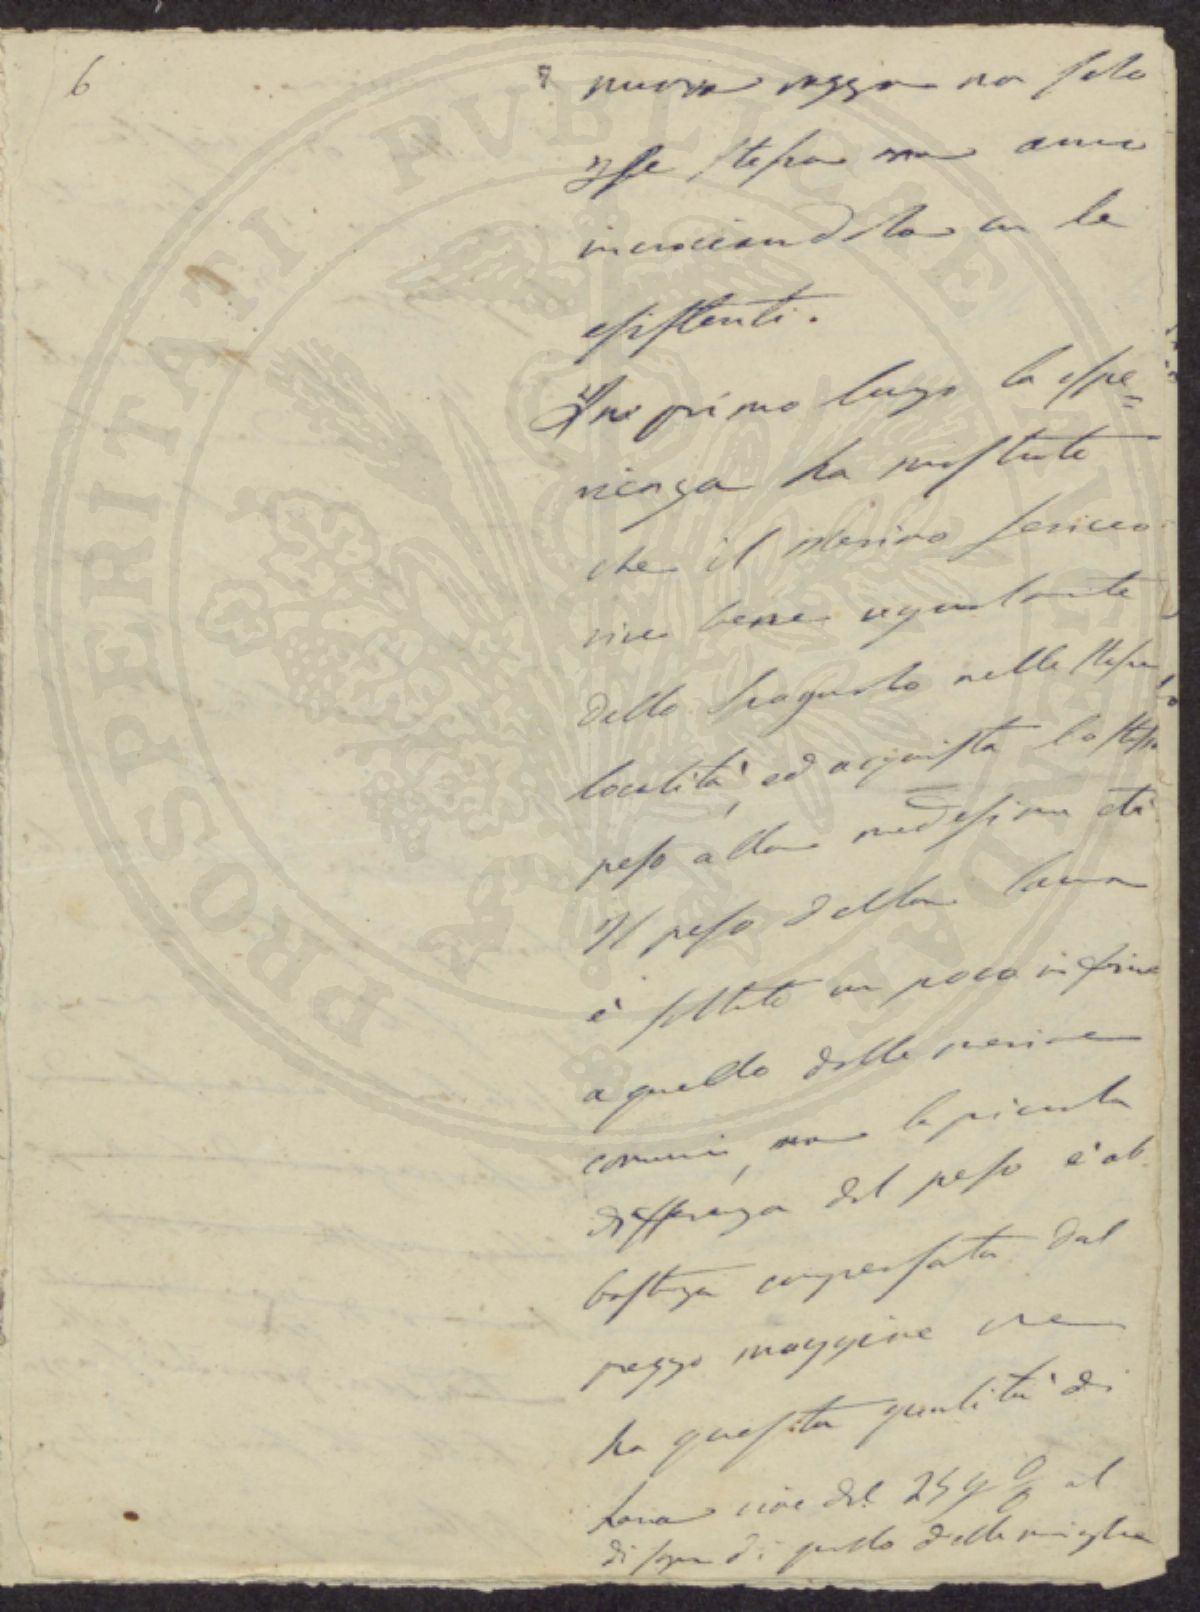 6
7 nuova razza non solo
per se stessa ma anco
incrociandola con le
esistenti.
In primo luogo la espe=
rienza ha mostrato
che il merino sericeo
vive bene ugualmente
dello spagnolo nelle stesse
località, ed acquista lo stesso
peso alla medesima età
Il peso della lana
è soltanto un poco inferiore
a quello delle merine
comuni, ma la piccola
differenza del peso è ab
bastanza compensata dal
prezzo maggiore che
ha questa qualità di
lana cioè del 25 p % al
di sopra di quello delle migliori
PROSPERITATI PVBLICAE AVGENDAE